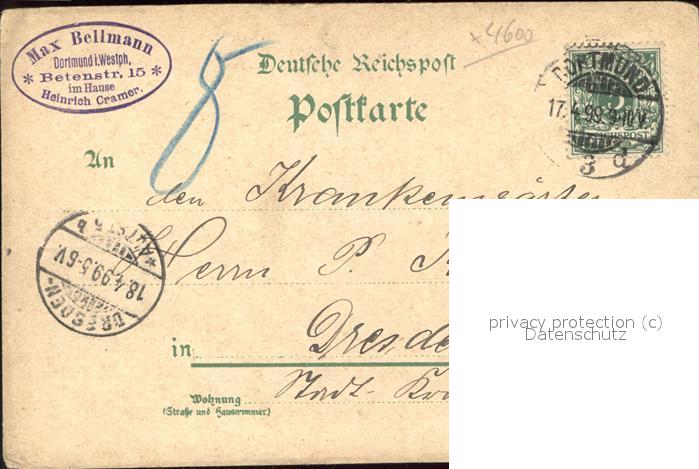 Max Bellmann
Dortmund i. Westph,
* Betenstr. 15 *
im Hause
Heinrich Cramer.
8
+4600
Deutsche Reichspost
Postkarte
DORTMUND
17.4.99.9-10.V.
REICHSPOST
3 d
An
den
Herrn P.
in Dresde
Stadt-
Wohnung
(Straße und Hausnummer)
DRESDEN-
18.4.99.5-6V.
*ALTST. 5 b
privacy protection (c)
Datenschutz